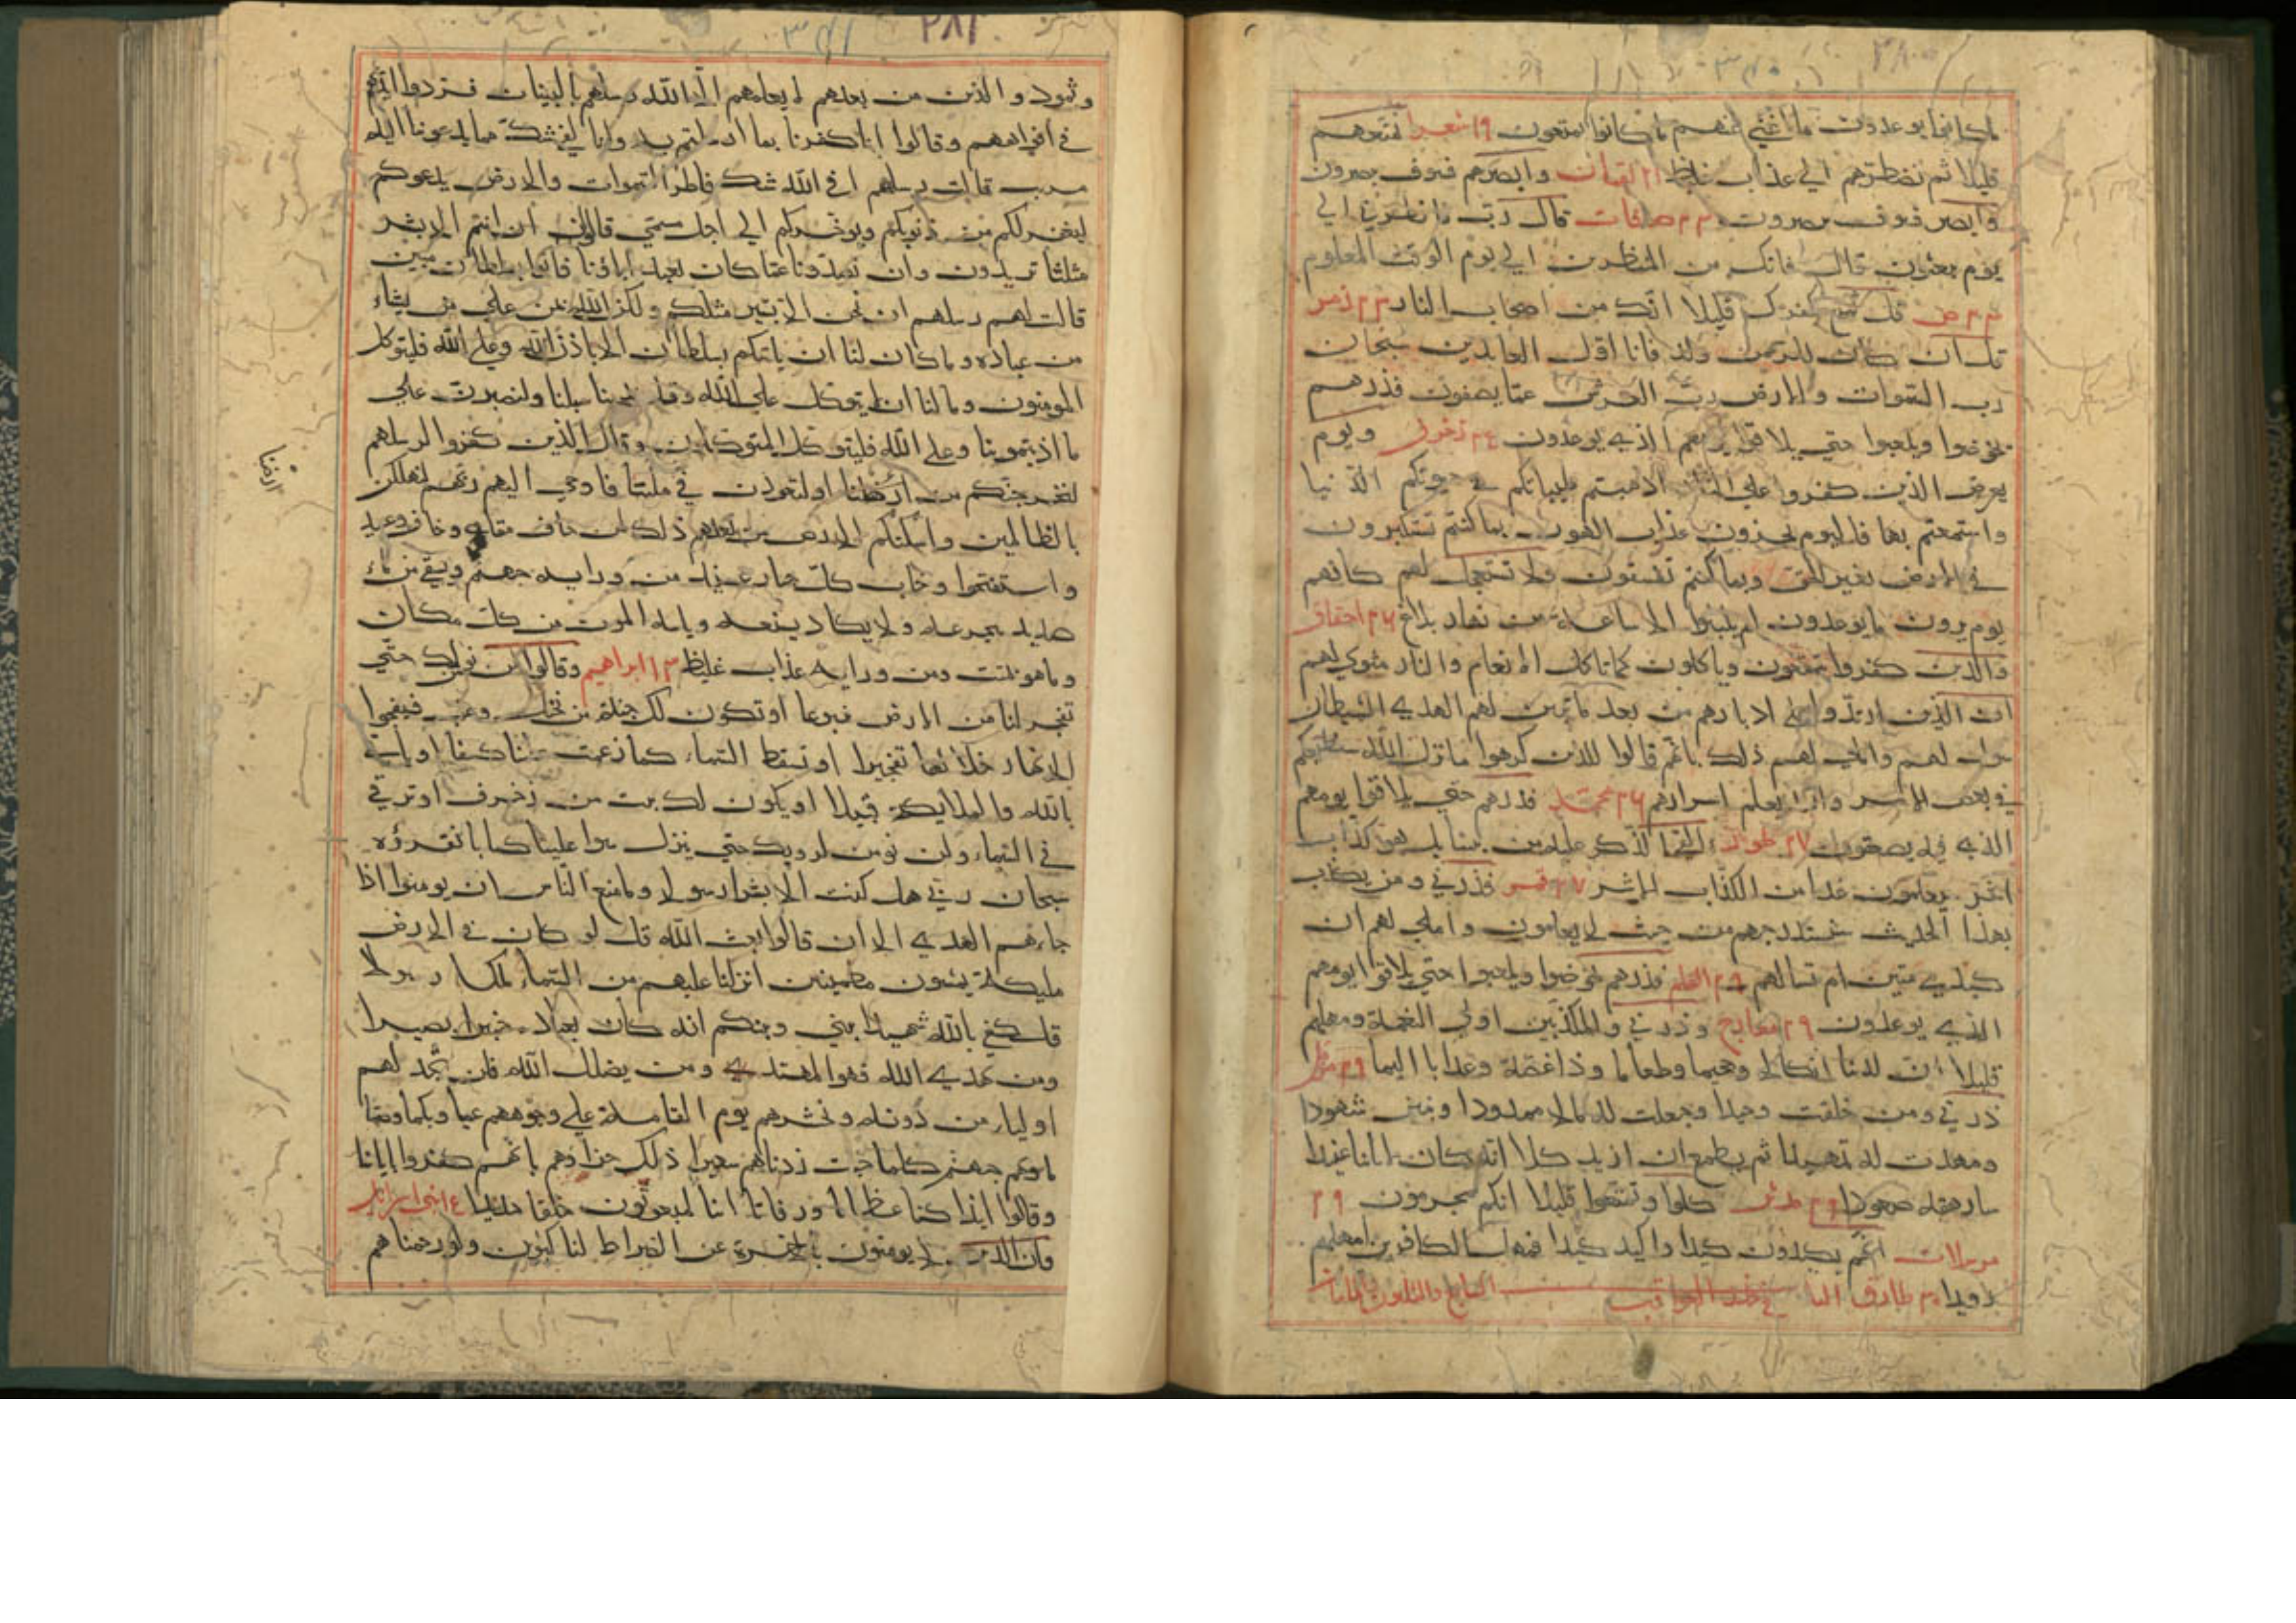 ما كانوا يوعدون ما اغني عنهم ما كانوا يمتعون ١٩ شعرا نمتعهم
قليلا ثم نضطرهم الي عذاب غليظ ٢١ لقمان وابصرهم فسوف يبصرون
وابصر فسوف يبصرون ٢٣ صافات قال رب فانظرني الي
يوم يبعثون قال فانك من المنظرين الي يوم الوقت المعلوم
٢٣ ص قل تمتع بكفرك قليلا انك من اصحاب النار ٢٣ زمر
قل ان كان للرحمن ولد فانا اول العابدين سبحان
رب السموات والارض رب العرش عما يصفون فذرهم
يخوضوا ويلعبوا حتي يلاقوا يومهم الذي يوعدون ٢٤ زخرف ويوم
يعرض الذين كفروا علي النار اذهبتم طيباتكم في حيوتكم الدنيا
واستمتعتم بها فاليوم تجزون عذاب الهون بما كنتم تستكبرون
في الارض بغير الحق وبما كنتم تفسقون ولا تستعجل لهم كانهم
يوم يرون ما يوعدون لم يلبثوا الا ساعة من نهار بلاغ ٢٦ احقاف
والذين كفروا يتمتعون وياكلون كما تاكل الانعام والنار مثوي لهم
ان الذين ارتدوا علي ادبارهم من بعد ما تبين لهم الهدي الشيطان
سول لهم واملي لهم ذلك بانهم قالوا للذين كرهوا ما نزل الله سنطيعكم
في بعض الامر والله يعلم اسرارهم ٢٦ محمد فذرهم حتي يلاقوا يومهم
الذي فيه يصعقون ٢٧ طور االقي الذكر عليه من بيننا بل هو كذاب
اشر سيعلمون غدا من الكذاب الاشر ٢٧ قمر فذرني ومن يكذب
بهذا الحديث سنستدرجهم من حيث لا يعلمون واملي لهم ان
كيدي متين ام تسالهم ٢٩ القلم فذرهم يخوضوا ويلعبوا حتي يلاقوا يومهم
الذي يوعدون ٢٩ معارج وذرني والمكذبين اولي النعمة ومهلهم
قليلا ان لدينا انكالا وجحيما وطعاما وذا غصة وعذابا اليما ٢٩ مزمل
ذرني ومن خلقت وحيدا وجعلت له مالا ممدودا وبنين شهودا
ومهدت له تمهيدا ثم يطمع ان ازيد كلا انه كان لاياتنا عنيدا
سارهقه صعودا ٢٩ مدثر كلوا وتمتعوا قليلا انكم مجرمون ٢٩
مرسلات انهم يكيدون كيدا واكيد كيدا فمهل الكافرين امهلهم
رويدا ٣٠ طارق
٢٨١
وثمود والذين من بعدهم لا يعلمهم الا الله رسلهم بالبينات فردوا ايديهم
في افواههم وقالوا انا كفرنا بما ارسلتم به وانا لفي شك مما يدعوننا اليه
مريب قالت رسلهم افي الله شك فاطر السموات والارض يدعوكم
ليغفر لكم من ذنوبكم ويوخركم الي اجل مسمي قالوا ان انتم الا بشر
مثلنا تريدون وان تصدونا عما كان يعبد اباؤنا فاتوا بسلطان مبين
قالت لهم رسلهم ان نحن الا بشر مثلكم ولكن الله يمن علي من يشاء
من عباده وما كان لنا ان ياتيكم بسلطان الا باذن الله وعلي الله فليتوكل
المومنون وما لنا ان لا نتوكل علي الله وقد هدينا سبلنا ولنصبرن علي
ما اذيتمونا وعلي الله فليتوكل المتوكلون وقال الذين كفروا لرسلهم
لنخرجنكم من ارضنا او لتعودن في ملتنا فاوحي اليهم ربهم لنهلكن
ارضنا
بالظالمين واسكنكم الارض من بعدهم ذلك لمن خاف مقامي وخاف وعيد
واستفتحوا وخاب كل جبار عنيد من ورايه جهنم ويسقي من ماء
صديد يتجرعه ولا يكاد يسيغه وياتيه الموت من كل مكان
وما هو بميت ومن ورايه عذاب غليظ ١٣ ابراهيم وقالوا لن نومن لك حتي
تفجر لنا من الارض ينبوعا او تكون لك جنة من نخيل وعنب فتفجرا
الانهار خلالها تفجيرا او تسقط السماء كما زعمت علينا كسفا او ياتي
بالله والملايكة قبيلا او يكون لك بيت من زخرف او ترقي
في السماء ولن نومن لرقيك حتي ينزل علينا كتابا نقرؤه
سبحان ربي هل كنت الا بشرا رسولا وما منع الناس ان يومنوا اذا
جاءهم الهدي الا ان قالوا ابعث الله قل لو كان في الارض
مليكة يمشون مطمئنين انزلنا عليهم من السماء ملكا رسولا
قل كفي بالله شهيدا بيني وبينكم انه كان بعباده خبيرا بصيرا
ومن يهدي الله فهو المهتدي ومن يضلل الله فلن تجد لهم
اولياء من دونه ونحشرهم يوم القيامة علي وجوههم عميا وبكما وصما
ماويهم جهنم كلما خبت زدناهم سعيرا ذلك جزاؤهم بانهم كفروا باياتنا
وقالوا ائذا كنا عظاما ورفاتا ائنا لمبعوثون خلقا جديدا ١٥ بني اسرائيل
وان الذين لا يومنون بالاخرة عن الصراط لناكبون ولو رحمناهم